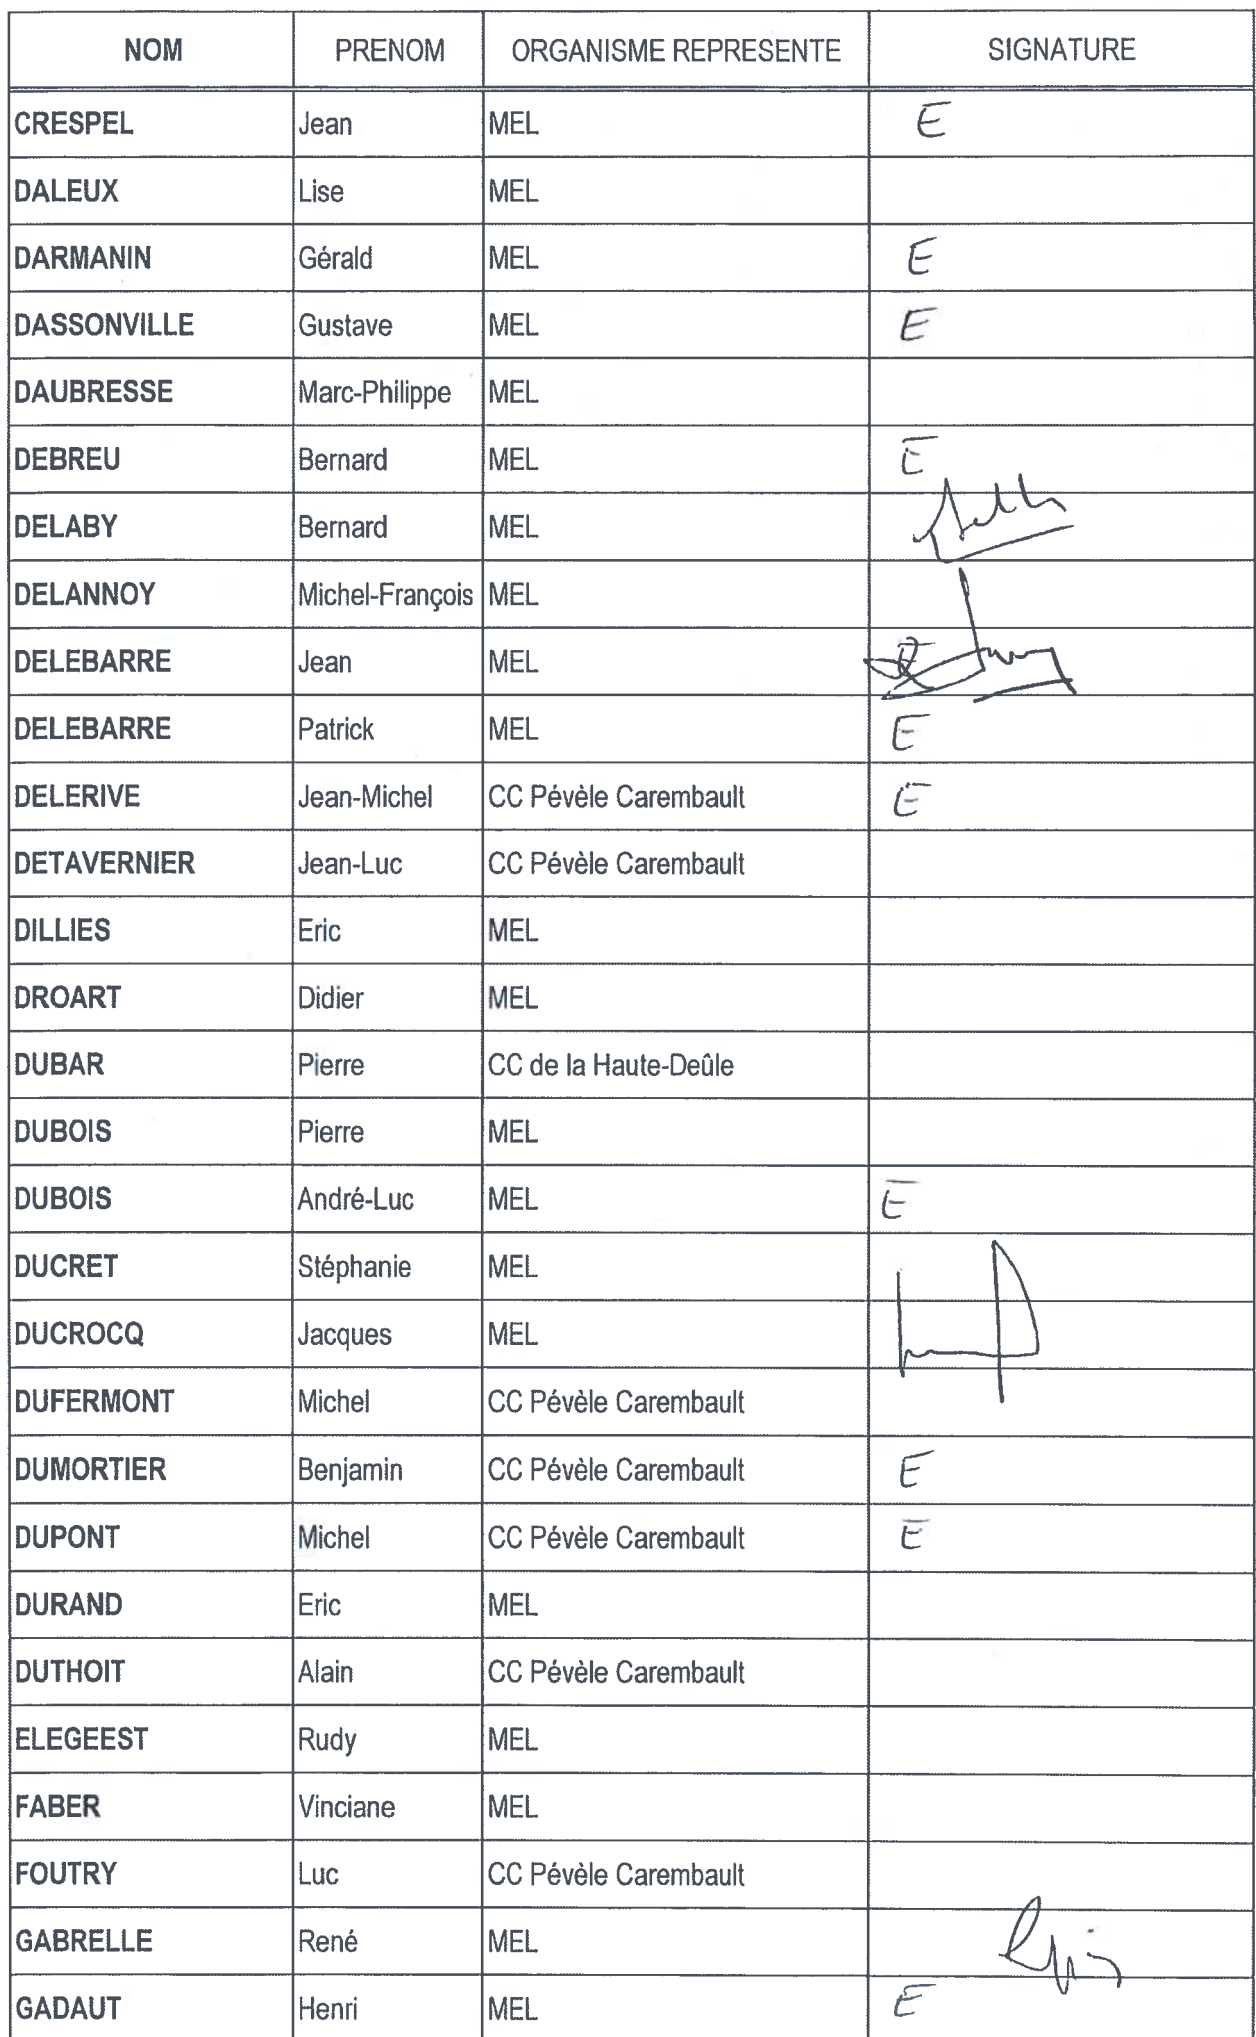 NOM PRENOM ORGANISME REPRESENTE SIGNATURE
CRESPEL Jean MEL E
DALEUX Lise MEL
DARMANIN Gérald MEL E
DASSONVILLE Gustave MEL E
DAUBRESSE Marc-Philippe MEL
DEBREU Bernard MEL E
DELABY Bernard MEL
DELANNOY Michel-François MEL
DELEBARRE Jean MEL
DELEBARRE Patrick MEL E
DELERIVE Jean-Michel CC Pévèle Carembault E
DETAVERNIER Jean-Luc CC Pévèle Carembault
DILLIES Eric MEL
DROART Didier MEL
DUBAR Pierre CC de la Haute-Deûle
DUBOIS Pierre MEL
DUBOIS André-Luc MEL E
DUCRET Stéphanie MEL
DUCROCQ Jacques MEL
DUFERMONT Michel CC Pévèle Carembault
DUMORTIER Benjamin CC Pévèle Carembault E
DUPONT Michel CC Pévèle Carembault E
DURAND Eric MEL
DUTHOIT Alain CC Pévèle Carembault
ELEGEEST Rudy MEL
FABER Vinciane MEL
FOUTRY Luc CC Pévèle Carembault
GABRELLE René MEL
GADAUT Henri MEL E